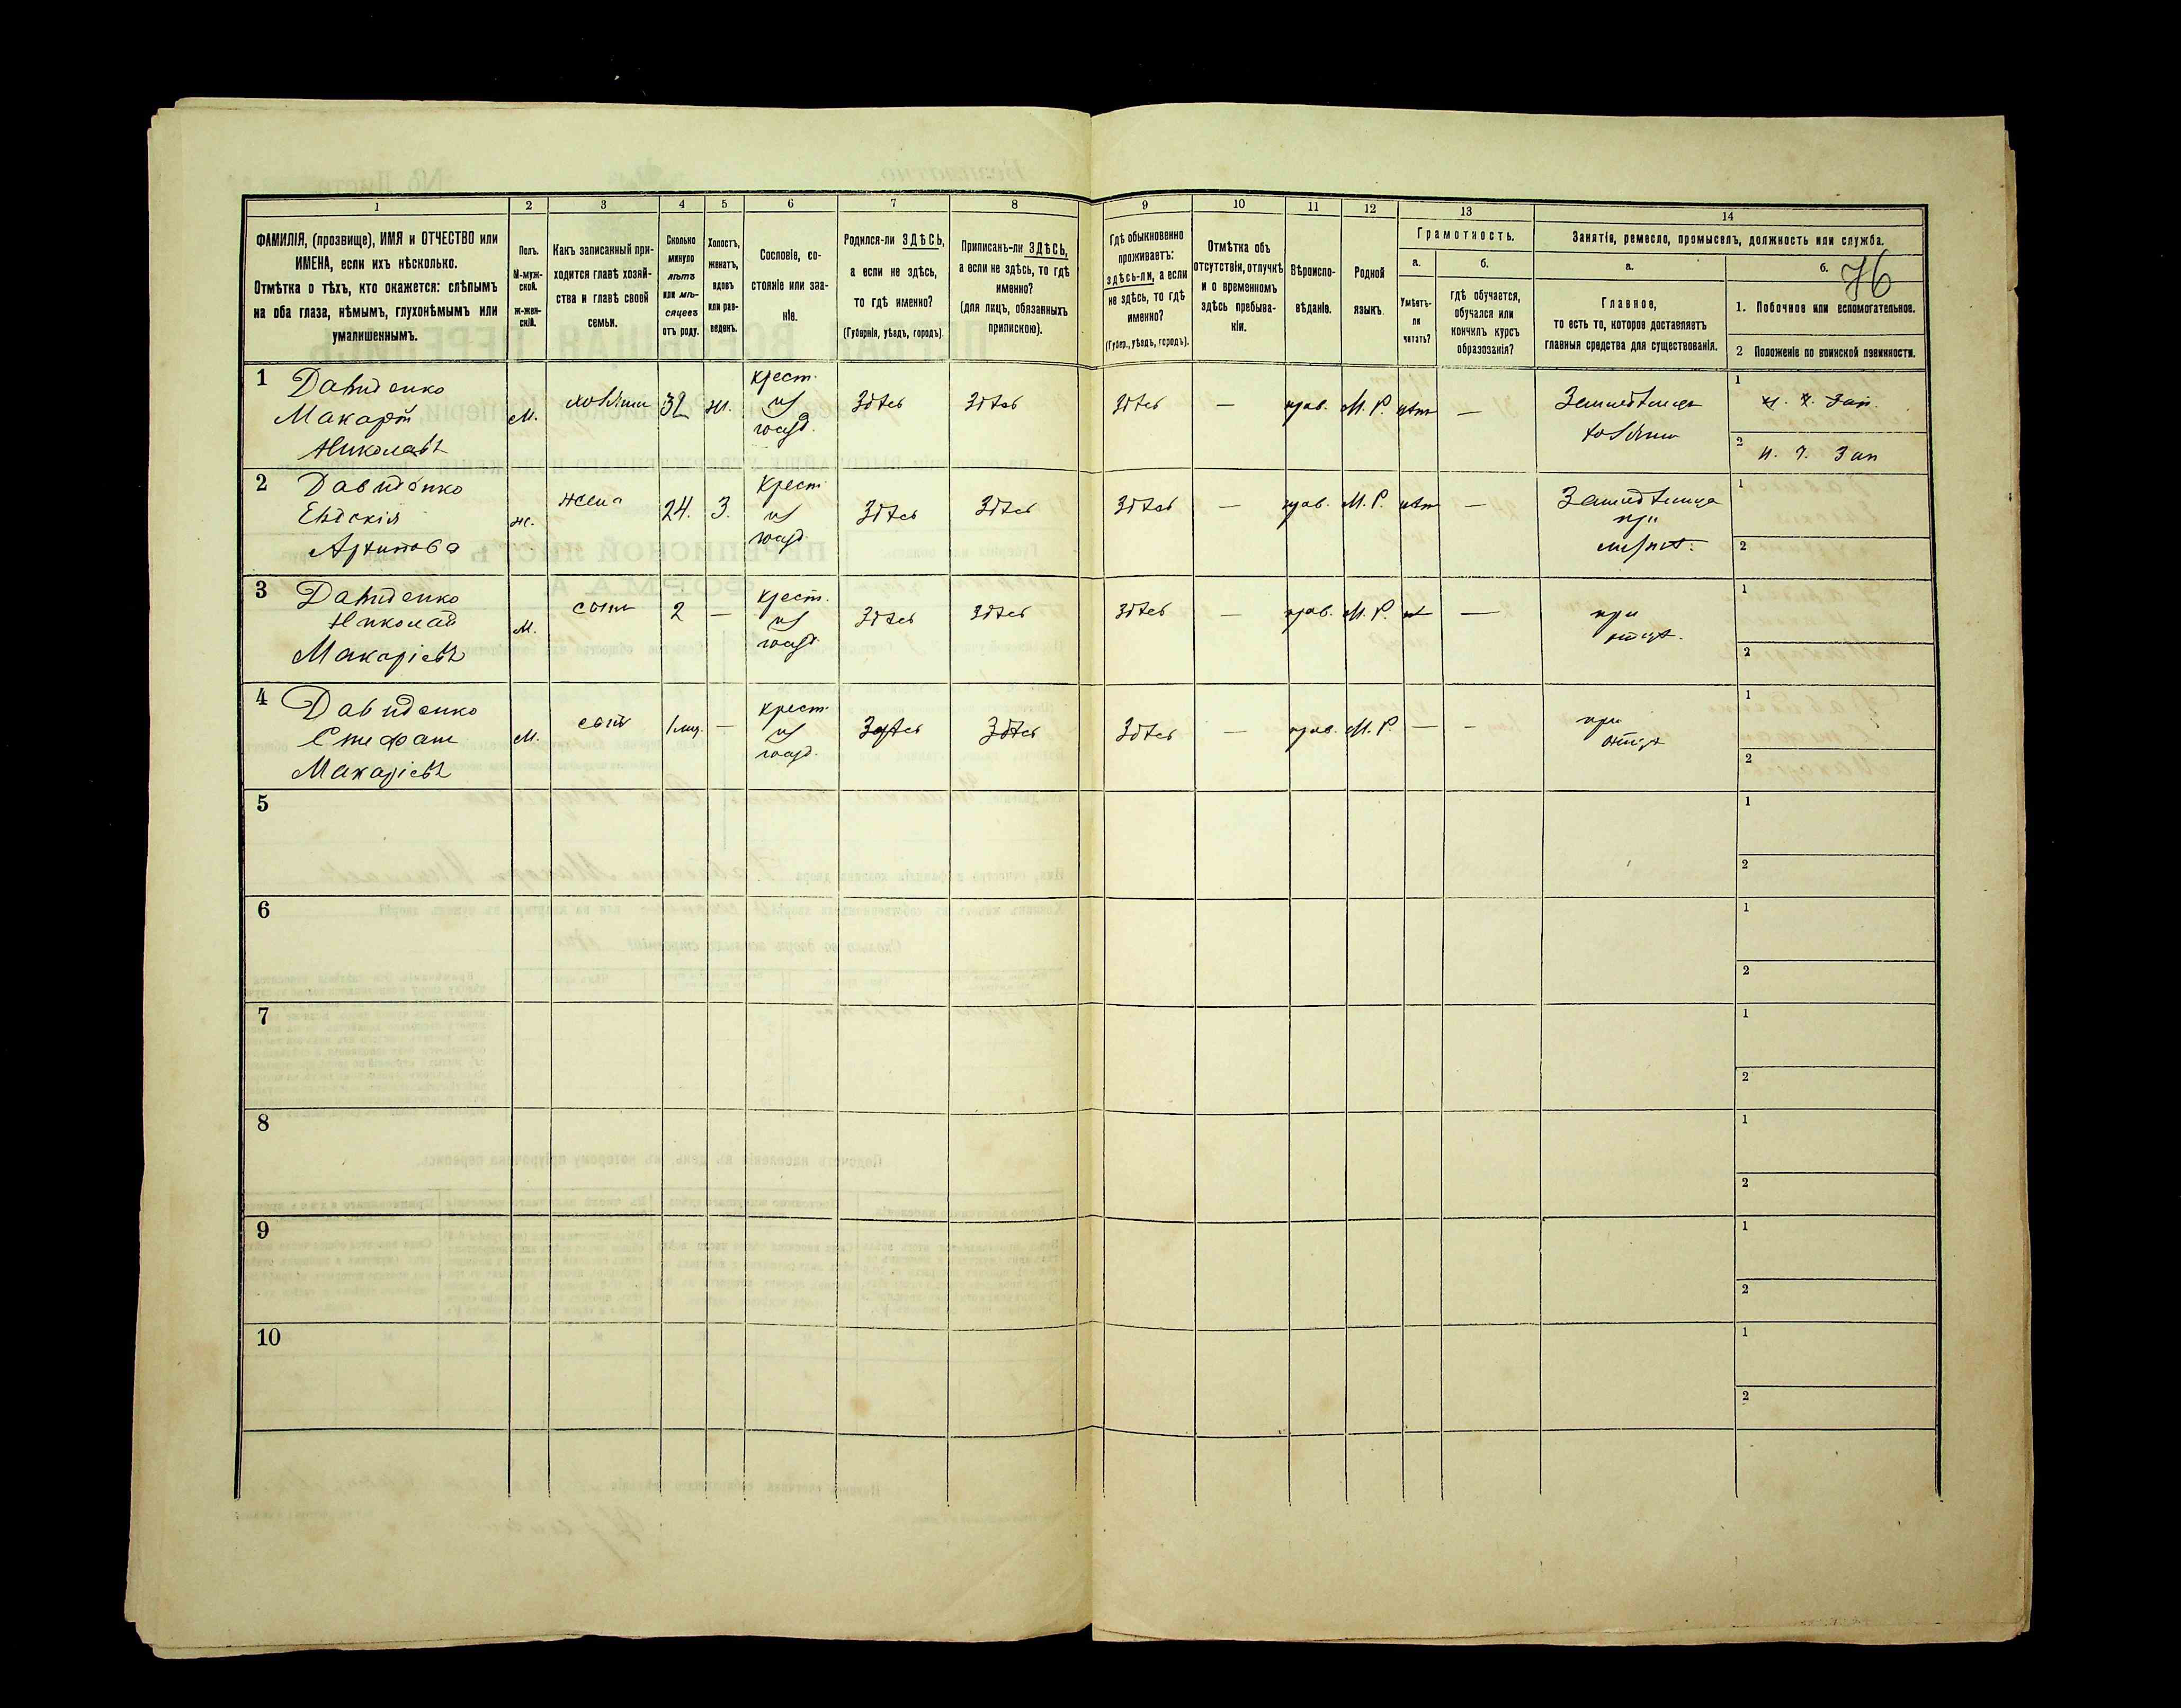 76
1
2
3
4
5
6
7
8
9
10
11
12
13
14
ФАМИЛІЯ, (прозвище), ИМЯ и ОТЧЕСТВО или
ИМЕНА, если ихъ нѣсколько.
Отмѣтка о тѣхъ, кто окажется: слѣпымъ
на оба глаза, нѣмымъ, глухонѣмымъ или
умалишеннымъ.
Полъ.
М-муж-
ской.
ж-жен-
скій.
Какъ записанный при-
ходится главѣ хозяй-
ства и главѣ своей
семьи.
Сколько
минуло
лѣтъ
или мѣ-
сяцевъ
отъ роду.
Холостъ,
женатъ,
вдовъ
или раз-
веденъ.
Сословіе, со-
стояніе или зва-
ніе.
Родился-ли ЗДѢСЬ,
а если не здѣсь,
то гдѣ именно?
(Губернія, уѣздъ, городъ).
Приписанъ-ли ЗДѢСЬ,
а если не здѣсь, то гдѣ
именно?
(для лицъ, обязанныхъ
припискою).
Гдѣ обыкновенно
проживаетъ:
здѣсь-ли, а если
не здѣсь, то гдѣ
именно?
(Губер., уѣздъ, городъ).
Отмѣтка объ
отсутствіи, отлучкѣ
и о временномъ
здѣсь пребыва-
ніи.
Вѣроиспо-
вѣданіе.
Родной
языкъ.
Грамотность.
а.
Умѣетъ-
ли
читать?
б.
гдѣ обучается,
обучался или
кончилъ курсъ
образованія?
Занятія, ремесло, промыселъ, должность или служба.
а.
Главное,
то есть то, которое доставляетъ
главныя средства для существованія.
б.
1. Побочное или вспомогательное.
2 Положеніе по воинской повинности.
1
Давиденко
Макарій
Николаевъ
М.
хозяинъ
32
Ж.
крест.
из
госуд.
Здѣсь
Здѣсь
Здѣсь
—
прав.
М. Р.
нѣт
—
Земледѣлецъ
хозяинъ
1
н. ч. Зап.
2
н. ч. Зап
2
Давиденко
Евдокія
Архипова
ж.
жена
24.
З.
крест.
из
госуд.
Здѣсь
Здѣсь
Здѣсь
—
прав.
М. Р.
нѣт
—
Земледѣлица
при
мужѣ.
1
2
3
Давиденко
Николай
Макаріевъ
М.
сынъ
2
—
крест.
из
госуд.
Здѣсь
Здѣсь
Здѣсь
—
прав.
М. Р.
—
при
отцѣ.
1
2
4
Давиденко
Стефанъ
Макаріевъ
М.
сынъ
1 мц.
—
крест.
из
госуд.
Здѣсь
Здѣсь
Здѣсь
—
прав.
М. Р.
—
-
при
отцѣ
1
2
5
1
2
6
1
2
7
1
2
8
1
2
9
1
2
10
1
2